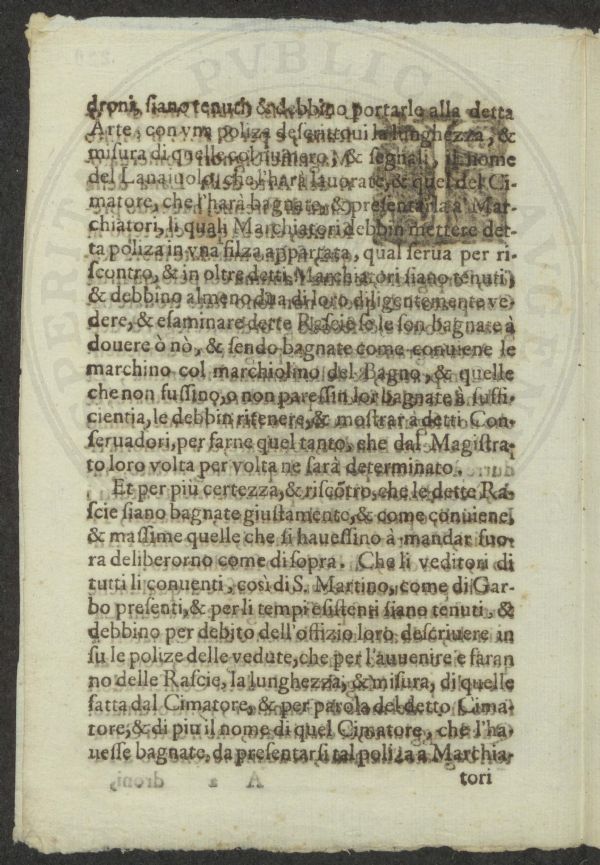 droni, siano tenuti, & debbino portarle alla detta
Arte, con vna poliza descrittoui la lunghezza, &
misura di quelle col numero, & segnali, il nome
del Lanaiuolo, che l'harà lauorate, & quel del Ci-
matore, che l'harà bagnate, & presentarla a Mar-
chiatori, li quali Marchiatori debbin mettere det-
ta poliza in vna filza appartata, qual serua per ri-
scontro, & in oltre detti Marchiatori siano tenuti,
& debbino almeno dua di loro diligentemente ve-
dere, & esaminare dette Rascie se le son bagnate à
douere ò nò, & sendo bagnate come conuiene le
marchino col marchiolino del Bagno, & quelle
che non fussino, o non paressin lor bagnate à suffi-
cientia, le debbin ritenere, & mostrar a detti Con-
seruadori, per farne quel tanto, che dal Magistra-
to loro volta per volta ne sarà determinato.
Et per più certezza, & riscõtro, che le dette Ra-
scie siano bagnate giustamente, & come conuiene,
& massime quelle che si hauessino à mandar fuo-
ra deliberorno come di sopra. Che li veditori di
tutti li conuenti, così di S. Martino, come di Gar-
bo presenti, & per li tempi esistenti siano tenuti, &
debbino per debito dell'offizio loro descriuere in
su le polize delle vedute, che per l'auuenire e faran
no delle Rascie, la lunghezza, & misura, di quelle
fatta dal Cimatore, & per parola del detto Cima-
tore, & di più il nome di quel Cimatore, che l'ha-
uesse bagnate, da presentarsi tal poliza a Marchia-
tori